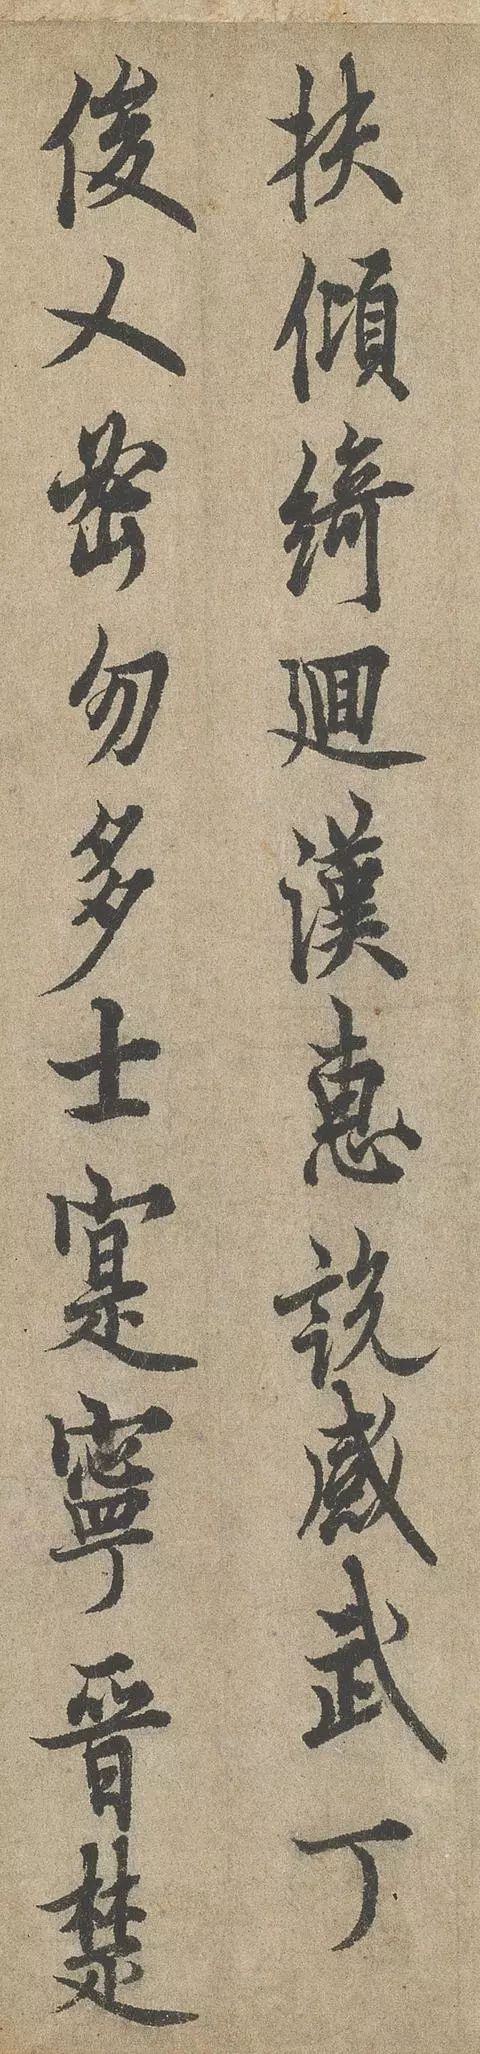 扶傾綺迴漢惠說感武丁
俊乂密勿多士寔寧晉楚